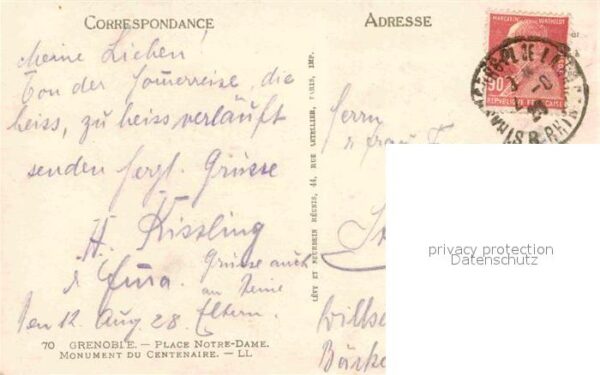 CORRESPONDANCE
Meine Lieben!
Von der Sommerreise, die
heiss, zu heiss verläuft
senden hergl. Grüsse
H. Kissling
&
Grüsse auch
an Deine
Eltern.
den 12. Aug. 28.
70 GRENOBLE. — PLACE NOTRE-DAME.
MONUMENT DU CENTENAIRE. — LL
LÉVY ET NEURDEIN RÉUNIS, 44, RUE LETELLIER, PARIS, IMP.
ADRESSE
90
RÉPUBLIQUE FRANÇAISE
Herrn
& Frau F.
privacy protection
Datenschutz